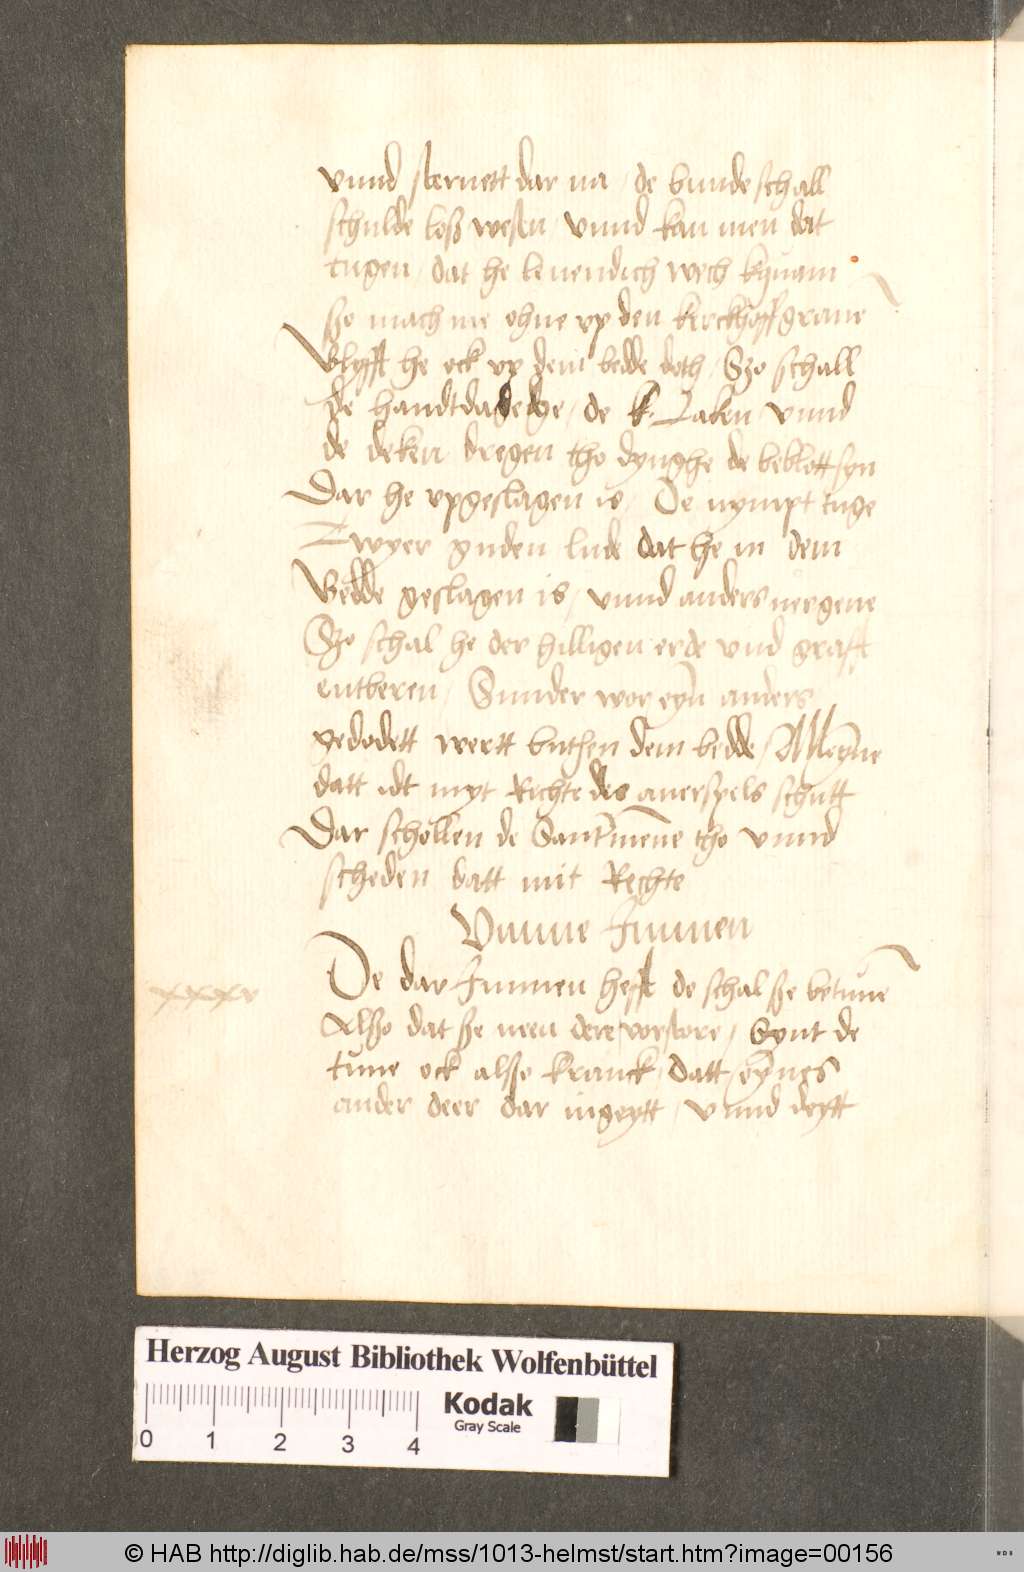 vnnd sternett dar na / de bunde schall
schulde loß wesen / vnnd kan men dat
tugen / dat he leuendich wech kquam
ße mach me ohne vp den kerckhoff grauē
Blyfft he ock vp dem bedde doth / Szo schall
de handtdadege / de Laken vnnd
de deken dregen tho dynghe de beblott syn
Dar he vpgeslagen is / De nympt tuge
Twyer guden lude dat he in dem
Bedde geslagen is / vnnd anders nergene
Szo schal he der hilligen erde vnd grafft
entberen / Sunder wor eyn anders
gedodett wertt buthen dem bedde / Alleyne
datt idt myt Richte des auerspels schutt
Dar schollen de Santmēne tho vnnd
scheden datt mit Rechte
Vanne Immen
xxxv
De dar Immen hefft de schal ße betunē
Alßo dat ße men dere vorstore / Synt de
tune ock alsso kranck datt eynes
ander deer dar ingeytt / vnnd deytt
Herzog August Bibliothek Wolfenbüttel
Kodak
Gray Scale
0 1 2 3 4
© HAB http://diglib.hab.de/mss/1013-helmst/start.htm?image=00156